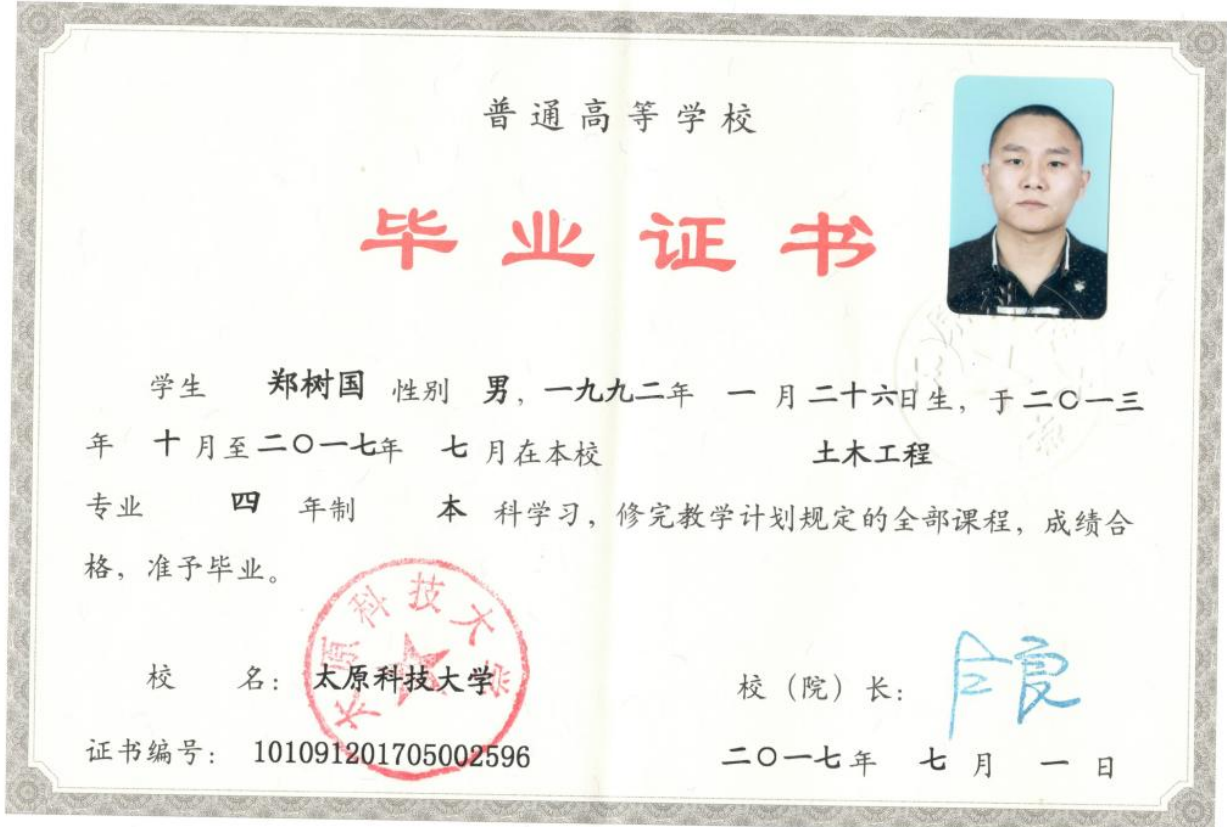 普通高等学校
毕业证书
学生 郑树国 性别 男，一九九二年 一 月二十六日生，于二〇一三
年 十 月至二〇一七年 七 月在本校 土木工程
专业 四 年制 本 科学习，修完教学计划规定的全部课程，成绩合
格，准予毕业。
太原科技大学
校 名：太原科技大学
校（院）长：
证书编号：101091201705002596
二〇一七年 七 月 一 日